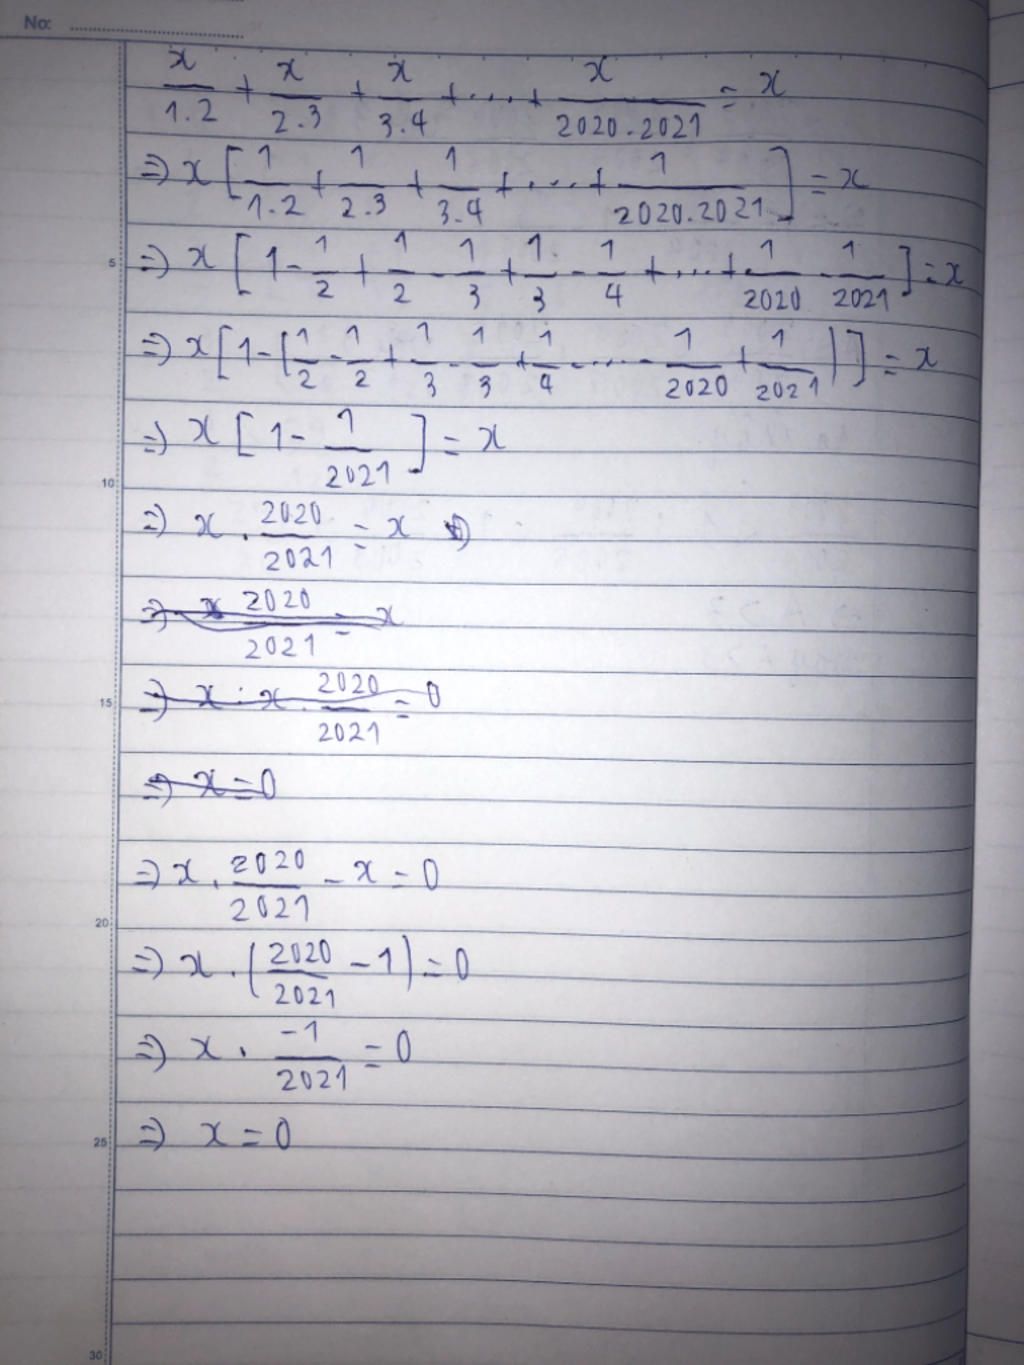 No:
x/1.2 + x/2.3 + x/3.4 + .... + x/2020.2021 = x
=) x [1/1.2 + 1/2.3 + 1/3.4 + .... + 1/2020.2021] = x
5 =) x [1 - 1/2 + 1/2 - 1/3 + 1/3 - 1/4 + .... + 1/2020 - 1/2021] = x
=) x [1 - (1/2 - 1/2 + 1/3 - 1/3 + 1/4 - .... - 1/2020 + 1/2021)] = x
=) x [1 - 1/2021] = x
10
=) x . 2020/2021 = x
=) x 2020/2021 - x
15 =) x . x . 2020/2021 = 0
=) x = 0
=) x . 2020/2021 - x = 0
20
=) x . (2020/2021 - 1) = 0
=) x . -1/2021 = 0
25 =) x = 0
30